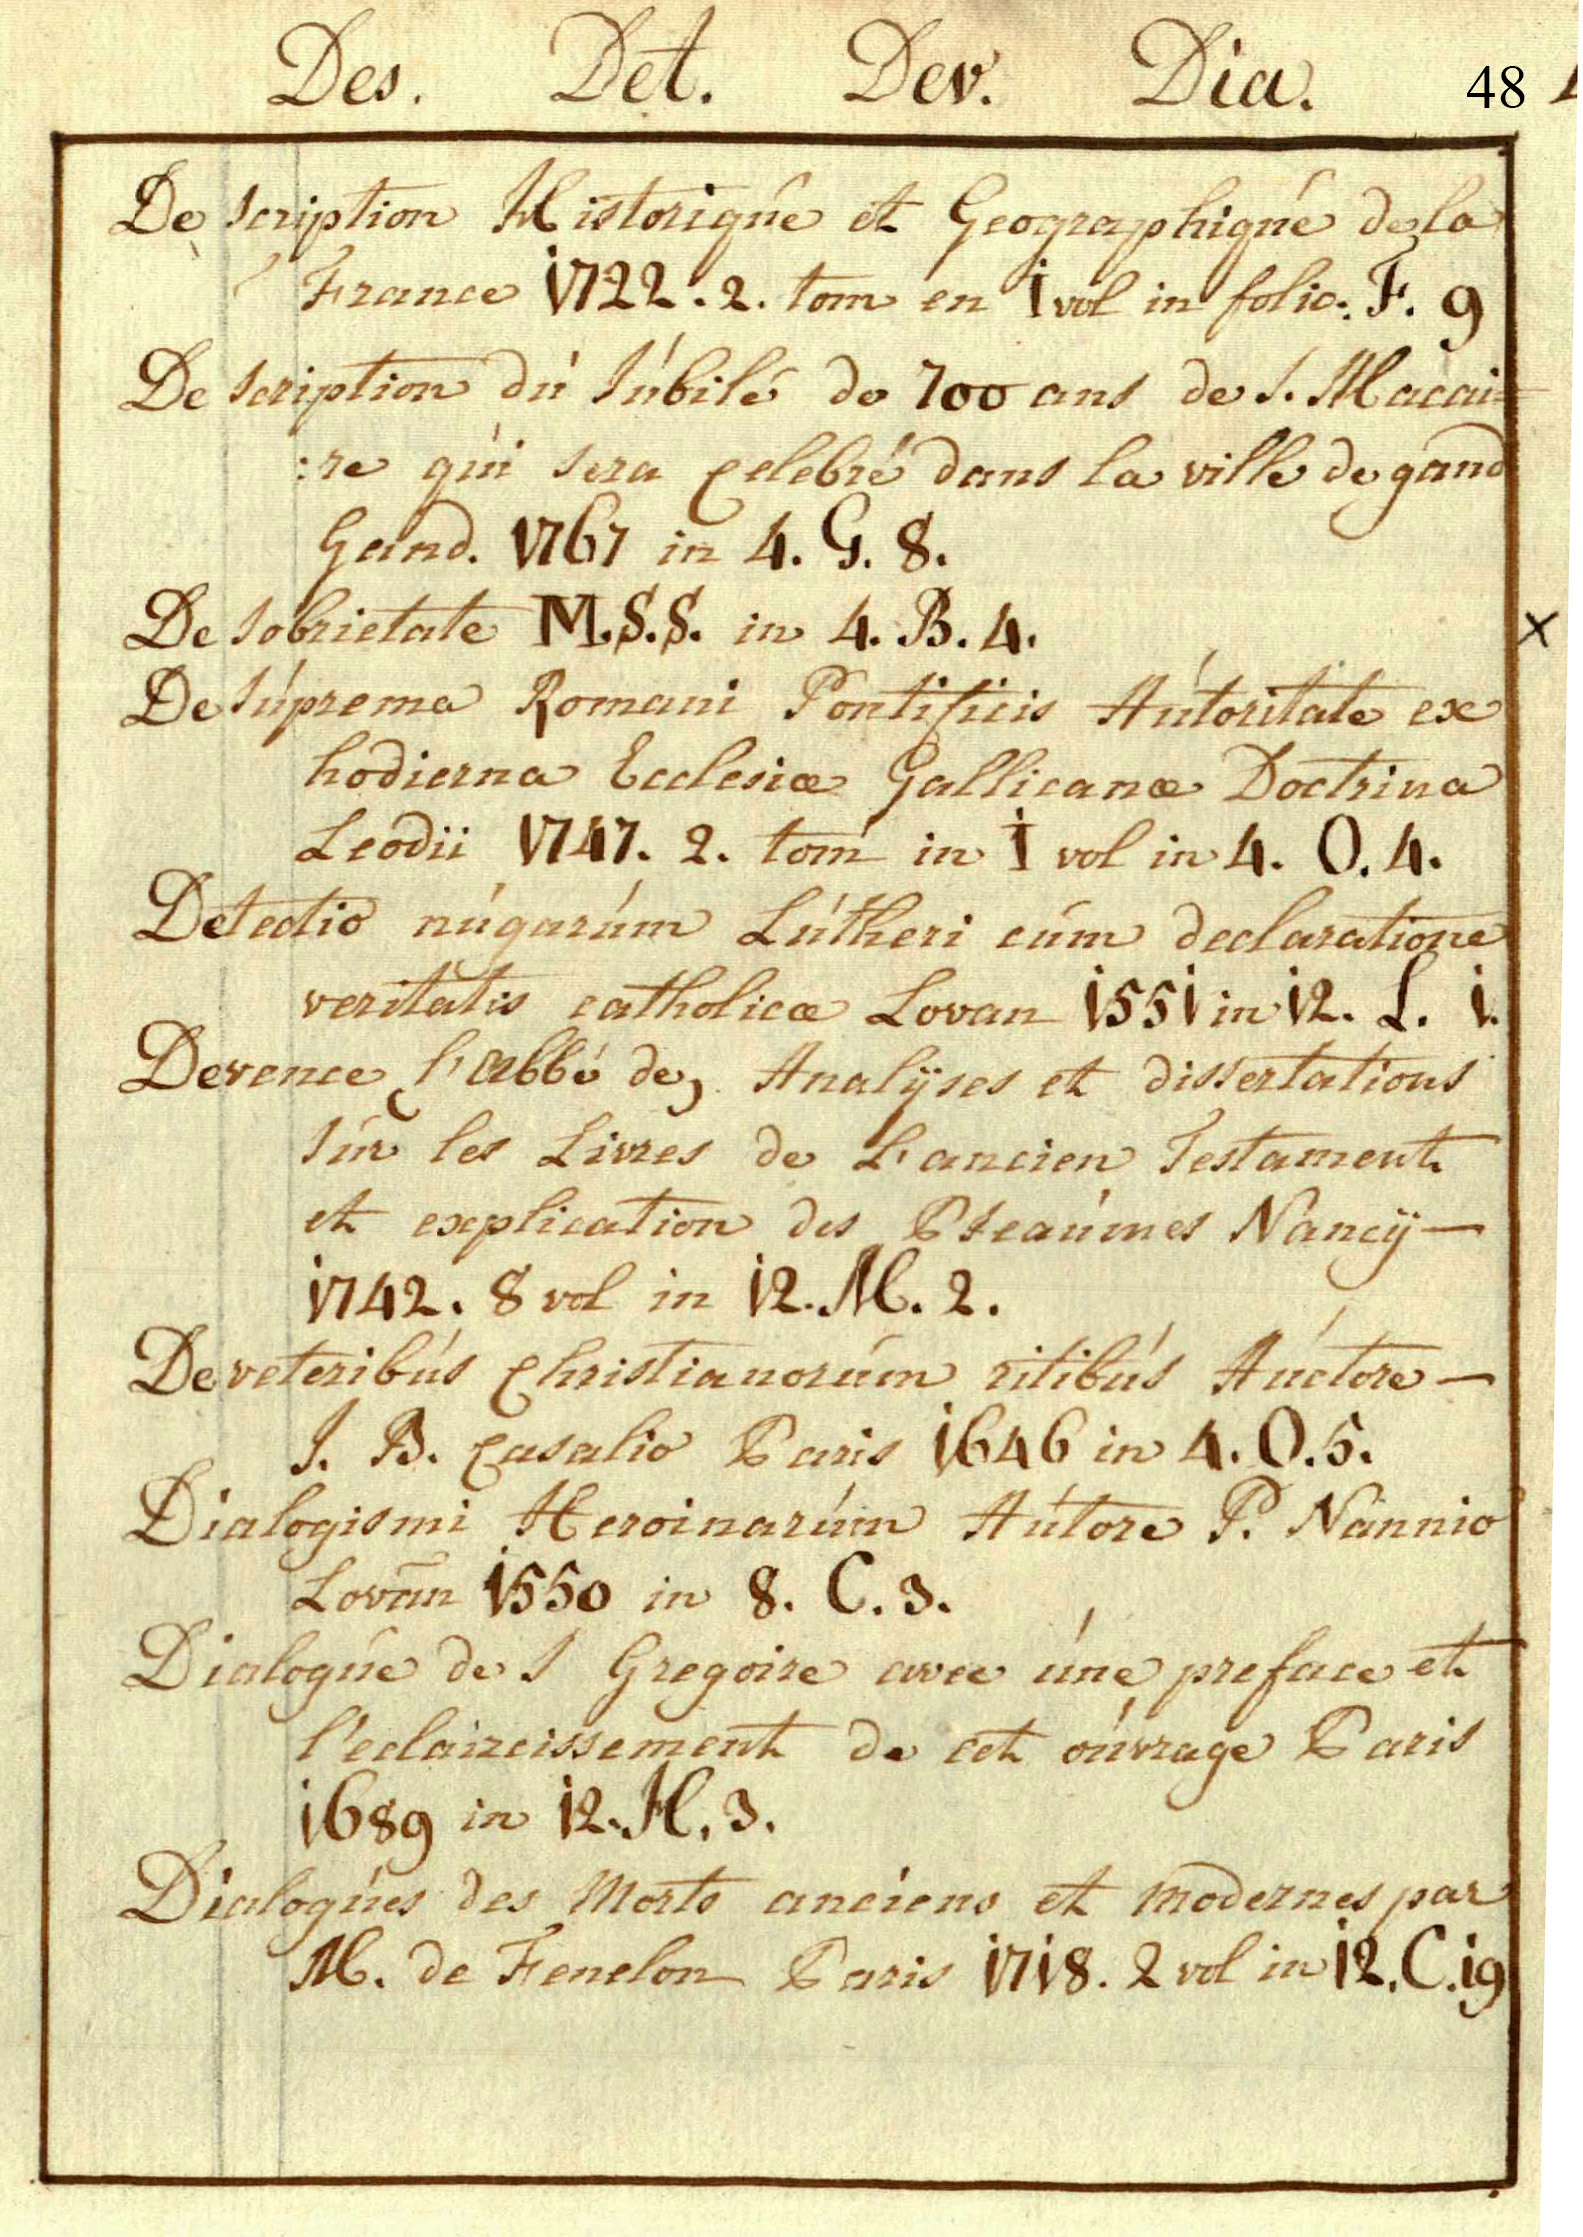 Des. Det. Dev. Dia. 48
Description Historique et Geographique de la
France 1722. 2. tom en 1 vol in folio. F. 9
Description du Jubilé de 700 ans de S. Macai=
:re qui sera celebré dans la ville de gand
Gand. 1767 in 4. G. 8.
De sobrietate M.S.S. in 4. B. 4. x
De suprema Romani Pontificis Autoritate ex
hodierna Ecclesiæ Gallicanæ Doctrina
Leodii 1747. 2. tom in 1 vol in 4. O. 4.
Detectio nugarum Lutheri cum declaratione
veritatis catholicæ Lovan 1551 in 12. L. 1.
Devence l'abbé de, Analÿses et dissertations
sur les Livres de L'ancien Testament
et explication des Pseaumes Nancÿ —
1742. 8 vol in 12. M. 2.
De veteribus christianorum ritibus Auctore —
J. B. Casalio Paris 1646 in 4. O. 5.
Dialogismi Heroinarum Autore P. Nannio
Lovan̄ 1550 in 8. C. 3.
Dialogue de S Gregoire avec une preface et
l'eclaircissement de cet ouvrage Paris
1689 in 12. H. 3.
Dialogues des Morts anciens et modernes par
M. de Fenelon Paris 1718. 2 vol in 12. C. 19